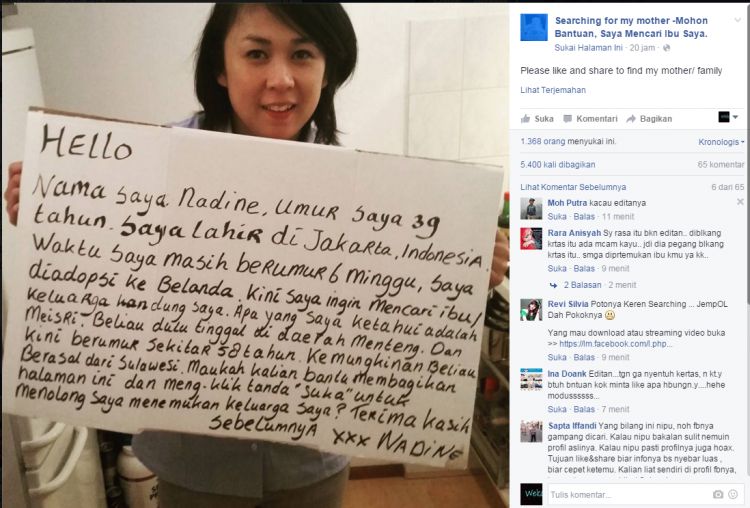 HELLO
Nama saya Nadine, Umur saya 39
tahun. Saya Lahir di Jakarta, Indonesia.
Waktu saya masih berumur 6 minggu, saya
diadopsi ke Belanda. Kini saya ingin mencari ibu/
keluarga kandung saya. Apa yang saya ketahui adalah
Meisri. Beliau dulu tinggal di daerah Menteng. Dan
kini berumur sekitar 58 tahun. Kemungkinan Beliau
Berasal dari Sulawesi. Maukah kalian bantu membagikan
halaman ini dan meng-klik tanda "suka" untuk
menolong saya menemukan keluarga saya? Terima kasih
sebelumnya xxx NADINE
Searching for my mother -Mohon
Bantuan, Saya Mencari Ibu Saya.
Sukai Halaman Ini · 20 jam ·
Please like and share to find my mother/ family
Lihat Terjemahan
Suka Komentari Bagikan
1.368 orang menyukai ini. Kronologis
5.400 kali dibagikan 65 komentar
Lihat Komentar Sebelumnya 6 dari 65
Moh Putra kacau editanya
Suka · Balas · 11 menit
Rara Anisyah Sy rasa itu bkn editan.. diblkang
krtas itu ada mcam kayu.. jdi dia pegang blkang
krtas itu.. smga diprtemukan ibu kmu ya kk..
Suka · Balas · 9 menit
2 Balasan · 2 menit
Revi Silvia Potonya Keren Searching ... JempOL
Dah Pokoknya
Yang mau download atau streaming video buka
>> https://lm.facebook.com/l.php...
Suka · Balas · 9 menit
Ina Doank Editan...tgn ga nyentuh kertas, n kt.y
btuh bntuan kok minta like apa hbungn.y....hehe
modusssssss...
Suka · Balas · 7 menit
Sapta Iffandi Yang bilang ini nipu, noh fbnya
gampang dicari. Kalau nipu bakalan sulit nemuin
profil aslinya. Kalau nipu pasti profilnya juga hoax.
Tujuan like&share biar infonya bs nyebar luas ,
biar cepet ketemu. Kalian liat sendiri di profil fbnya,
Tulis komentar...